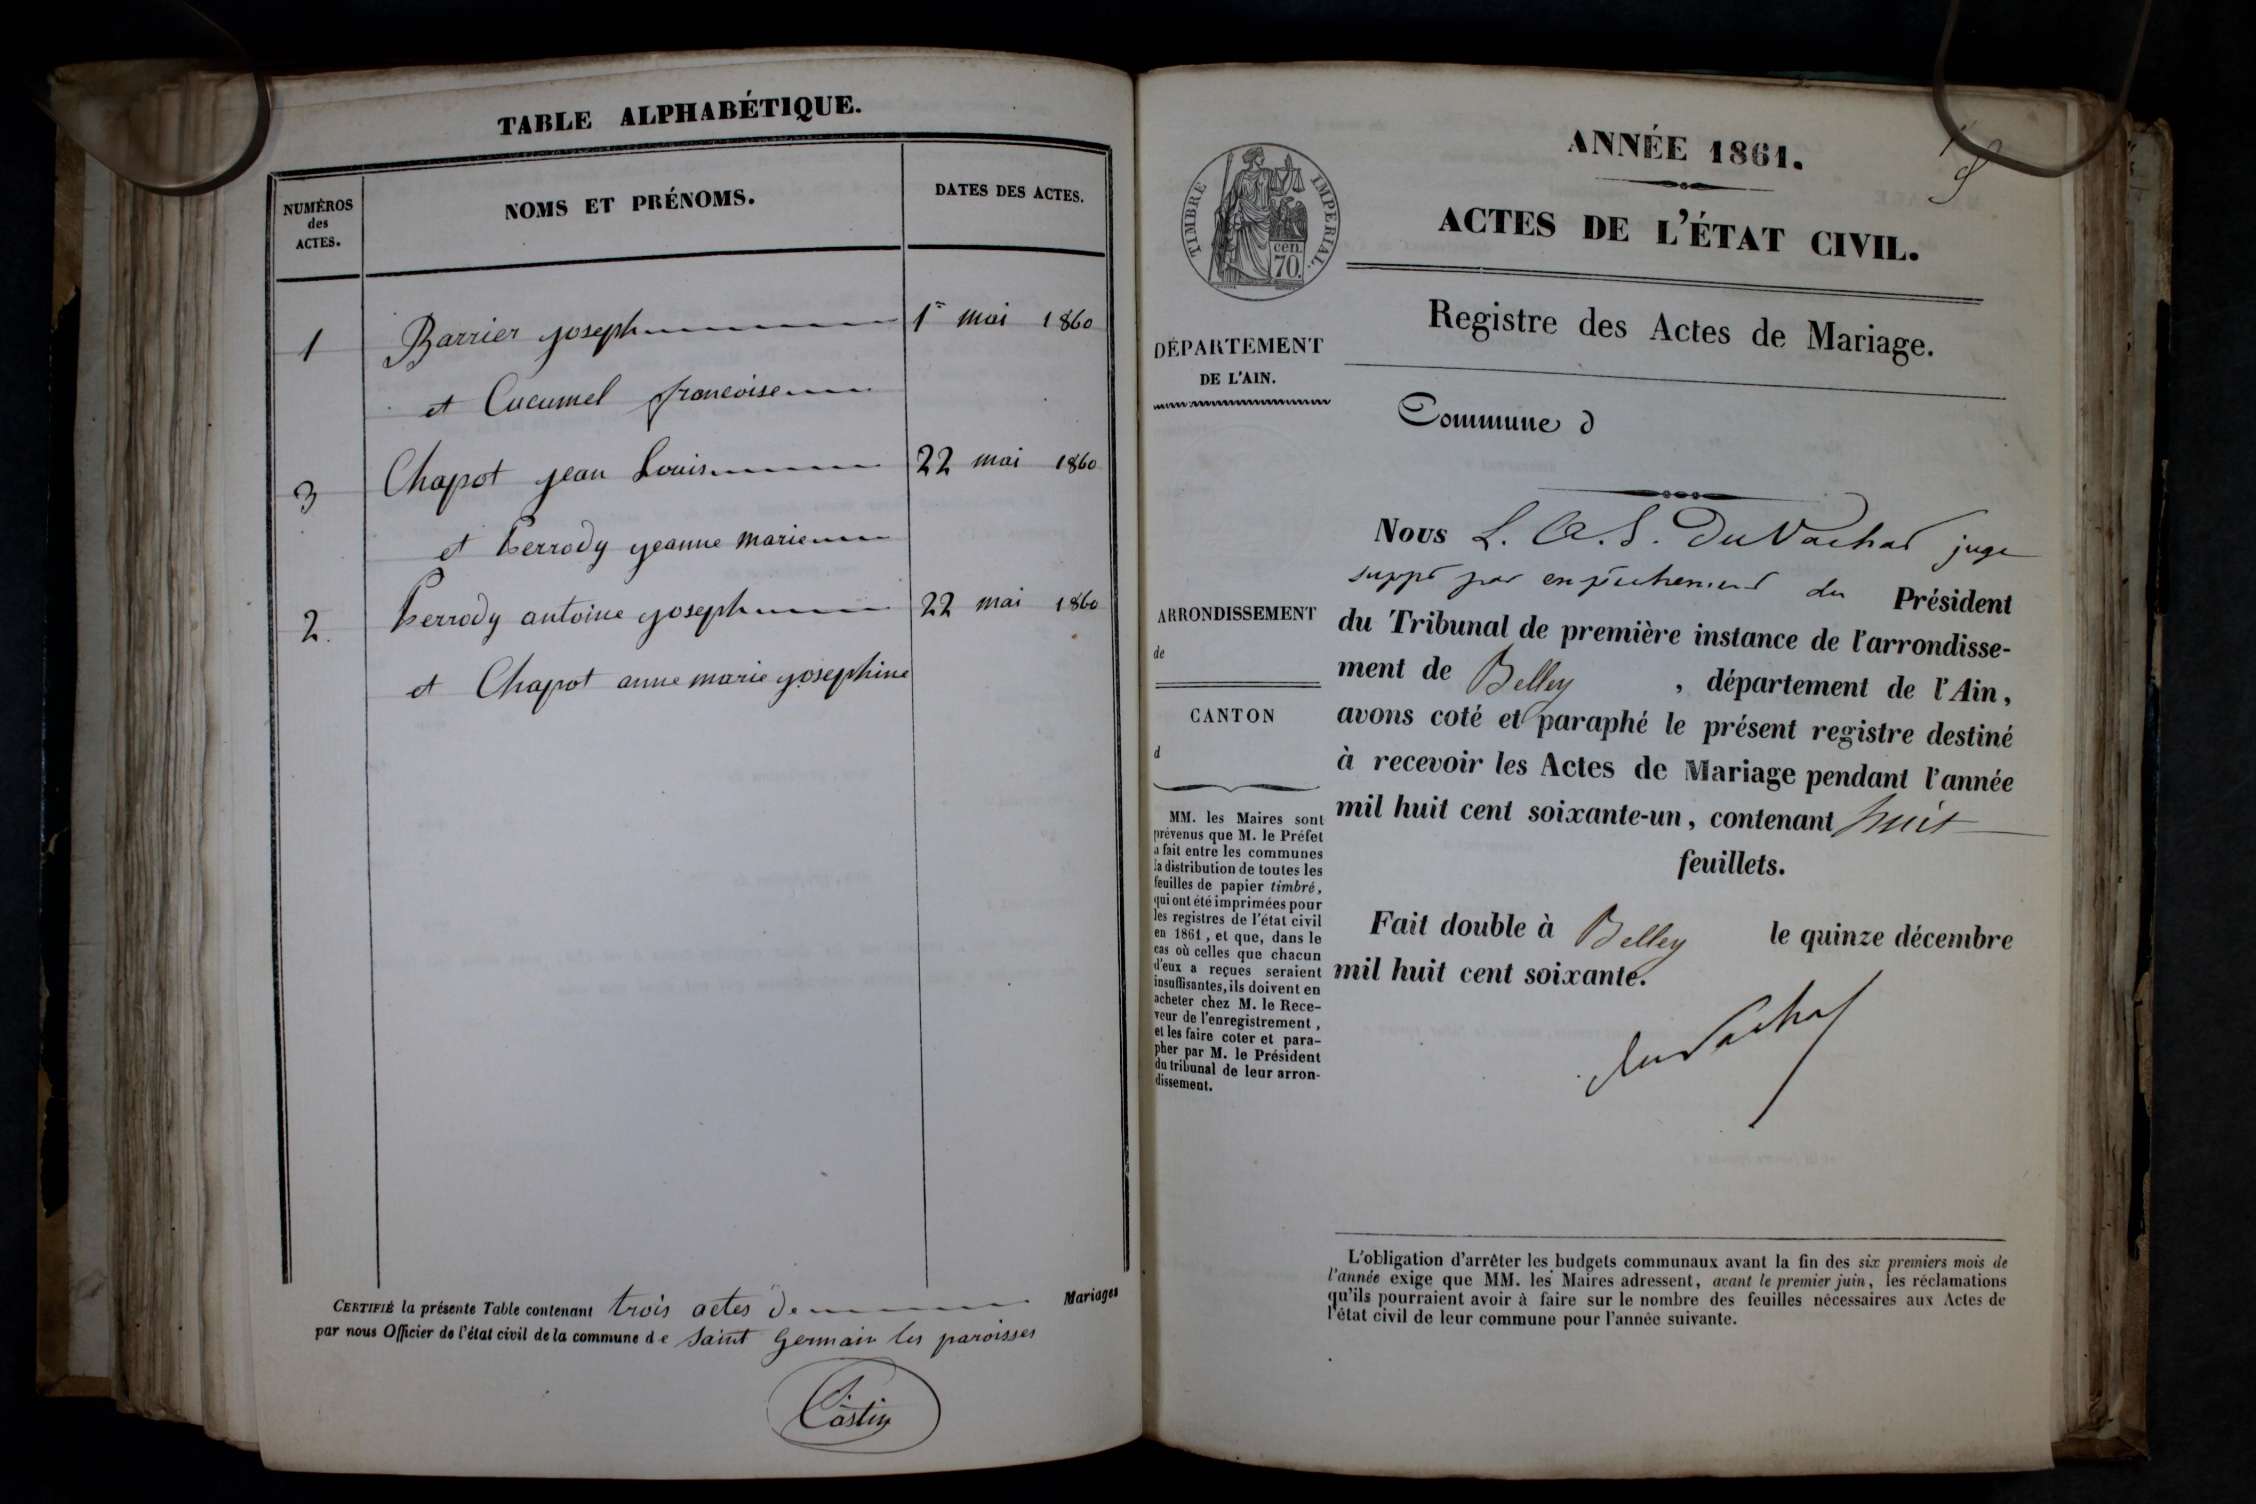 TABLE ALPHABÉTIQUE.
NUMÉROS
des
ACTES.
NOMS ET PRÉNOMS.
DATES DES ACTES.
1 Barrier joseph 1er mai 1860
et Cucumel francoise
3 Chapot jean Louis 22 mai 1860
et Perrody jeanne marie
2. Perrody antoine joseph 22 mai 1860
et Chapot anne marie josephine
CERTIFIÉ la présente Table contenant trois actes de Mariages
par nous Officier de l'état civil de la commune de saint germain les paroisses
Costin
ANNÉE 1861.
ACTES DE L'ÉTAT CIVIL.
TIMBRE IMPERIAL.
cen.
70.
Registre des Actes de Mariage.
DÉPARTEMENT
DE L'AIN.
Commune d
ARRONDISSEMENT
de
CANTON
d
MM. les Maires sont
prévenus que M. le Préfet
a fait entre les communes
la distribution de toutes les
feuilles de papier timbré,
qui ont été imprimées pour
les registres de l'état civil
en 1861, et que, dans le
cas où celles que chacun
d'eux a reçues seraient
insuffisantes, ils doivent en
acheter chez M. le Rece-
veur de l'enregistrement,
et les faire coter et para-
pher par M. le Président
du tribunal de leur arron-
dissement.
Nous L. A. S. DuVachat juge
suppt par empêchement du Président
du Tribunal de première instance de l'arrondisse-
ment de Belley, département de l'Ain,
avons coté et paraphé le présent registre destiné
à recevoir les Actes de Mariage pendant l'année
mil huit cent soixante-un, contenant huit
feuillets.
Fait double à Belley le quinze décembre
mil huit cent soixante.
duVachat
L'obligation d'arrêter les budgets communaux avant la fin des six premiers mois de
l'année exige que MM. les Maires adressent, avant le premier juin, les réclamations
qu'ils pourraient avoir à faire sur le nombre des feuilles nécessaires aux Actes de
l'état civil de leur commune pour l'année suivante.